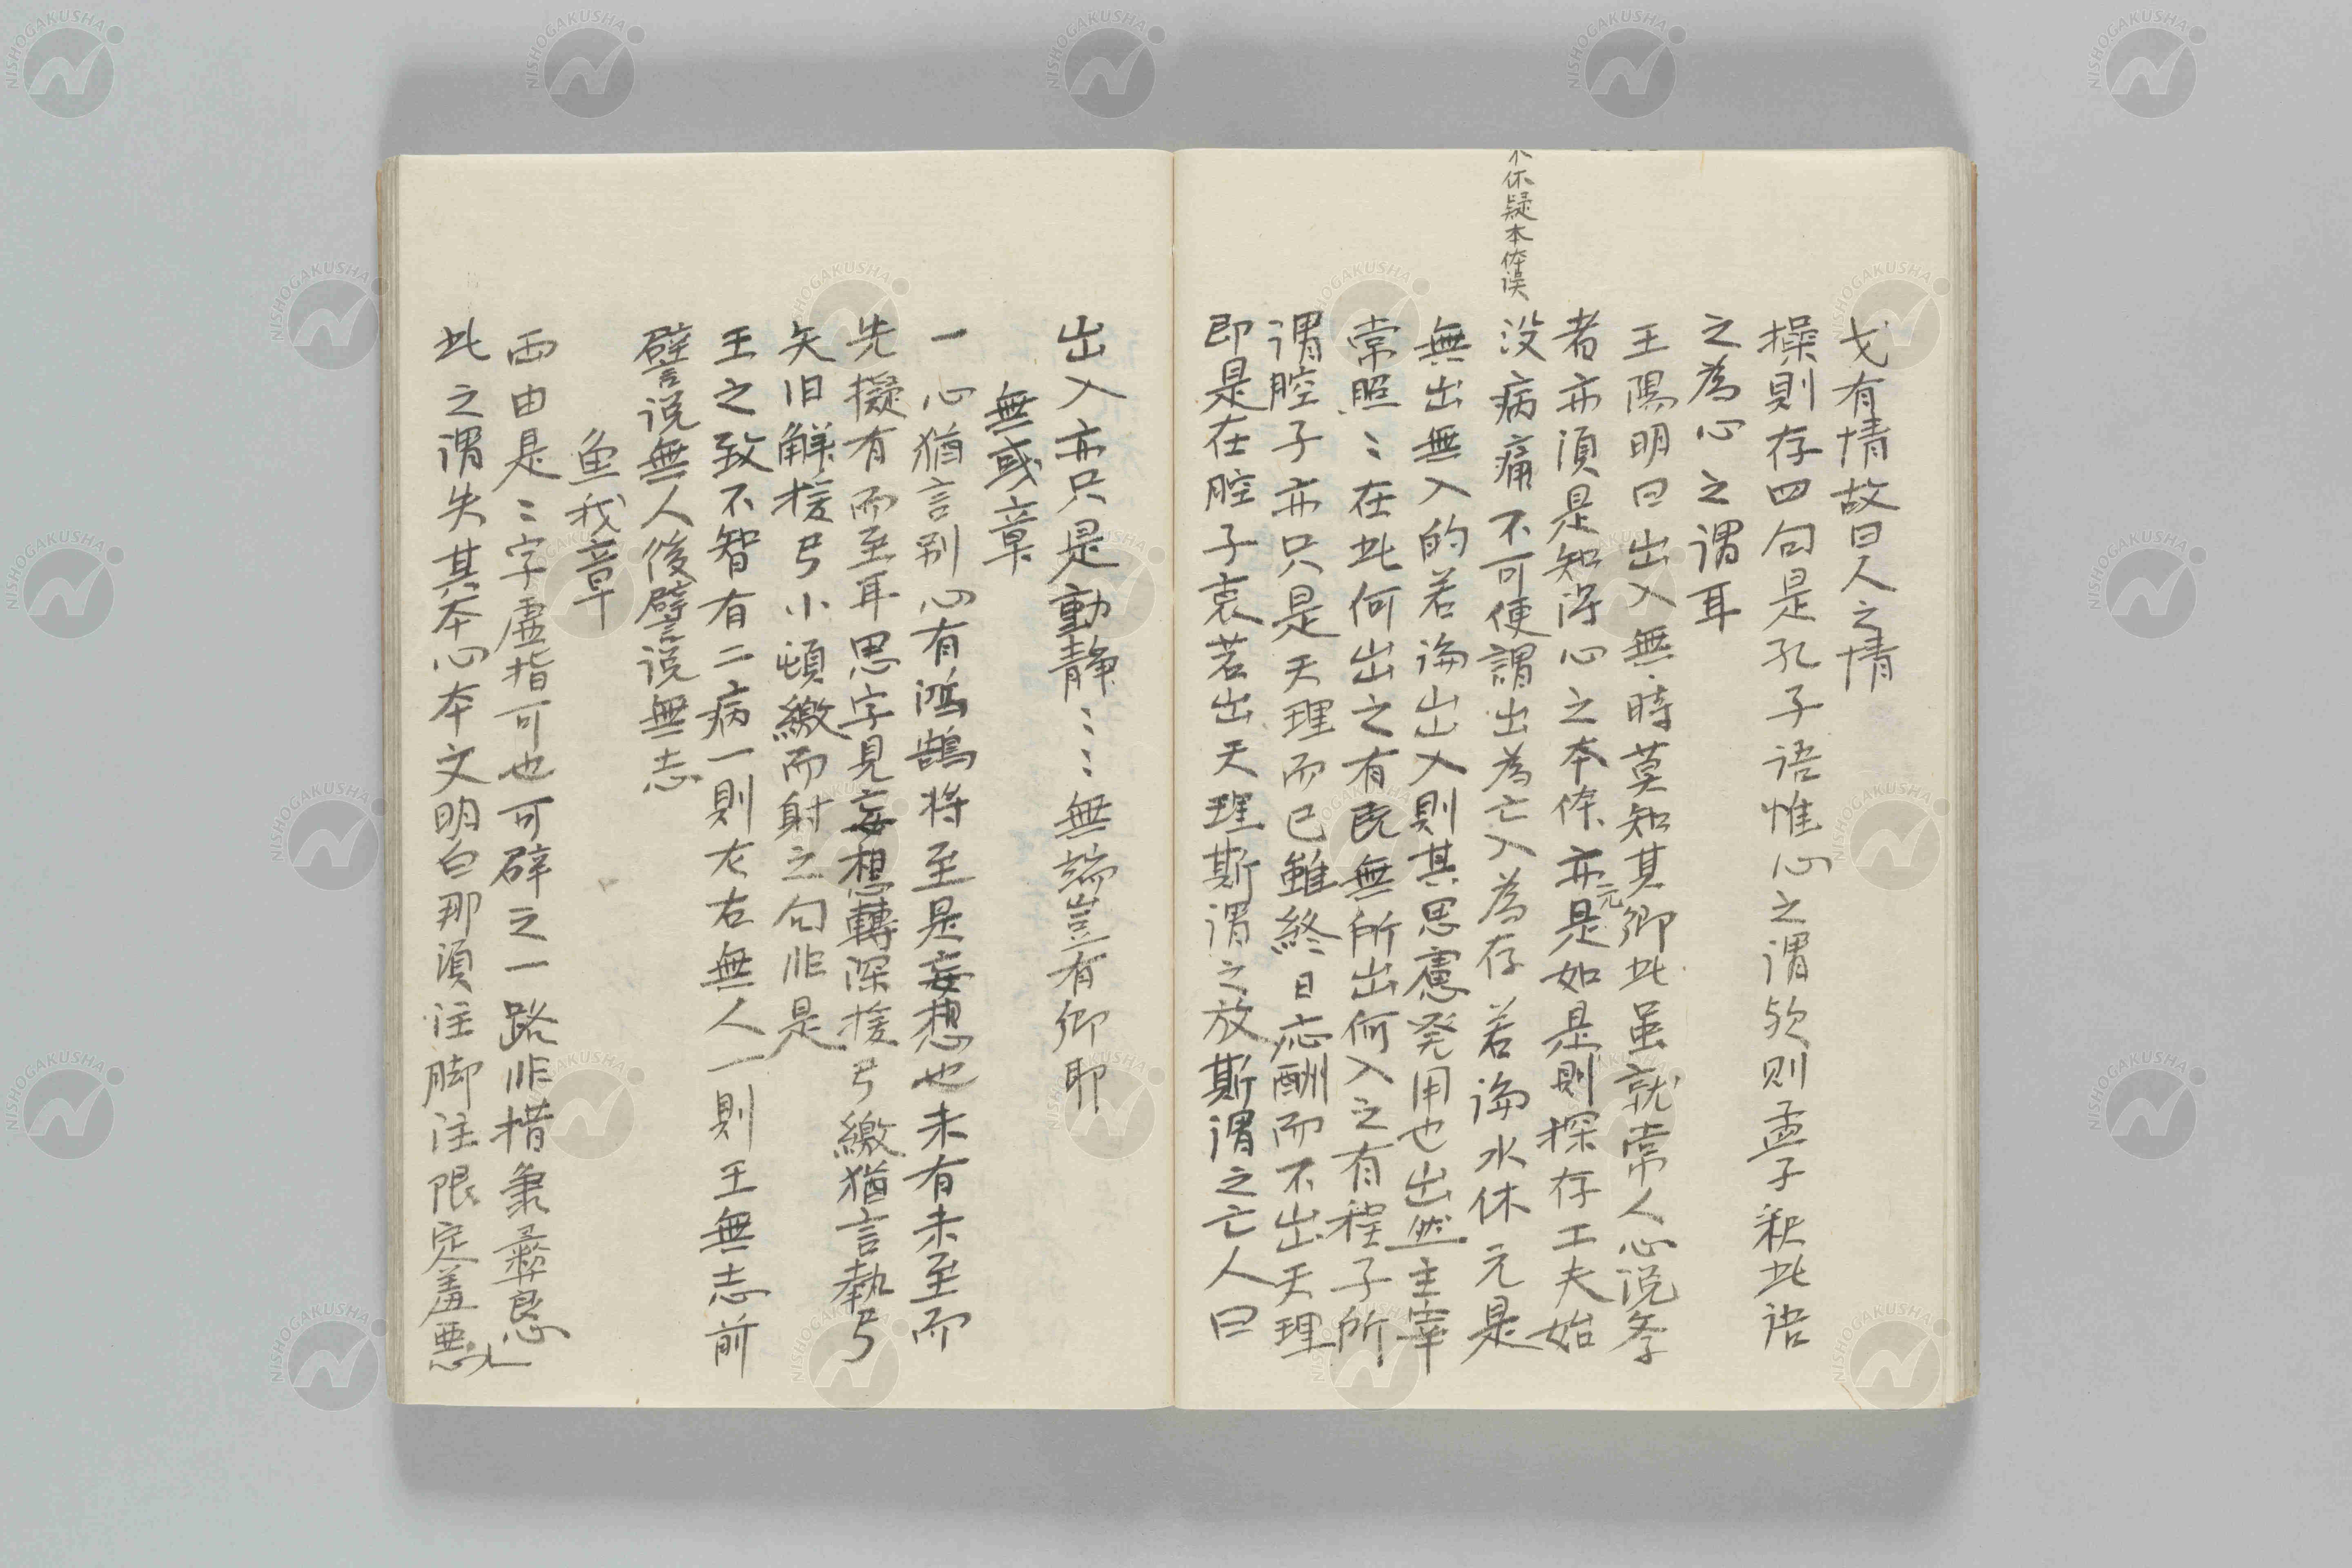 戈有情故曰人之情
操則存四句是孔子語惟心之謂欤則孟子釈此语
之為心之谓耳
王陽明曰出入無時莫知其郷此虽就常人心说孝
者亦須是知得心之本体亦元是如是則探存工夫始
没病痛不可便謂出為亡入為存若論水休元是
水休疑本体误
無出無入的若論出入則其思慮発用也出然主宰
常照〻在此何出之有既無所出何入之有程子所
谓腔子亦只是天理而已雖終日応酬而不出天理
即是在腔子裏若出天理斯谓之放斯謂之亡人曰
出入亦只是動静〻〻無端豈有郷耶
無或章
一心猶言别心有鴻鵠将至是妄想也未有未至而
先擬有而至耳思字見妄想轉深援弓繳猶言執弓
矢旧解援弓小頓繳而射之句非是
王之致不智有二病一則左右無人一則王無志前
譬说無人後譬说無志
鱼我章
西由是〻字虚指可也可辟之一路非措秉彝良心
此之谓失其本心本文明白那須注脚注限定羞悪